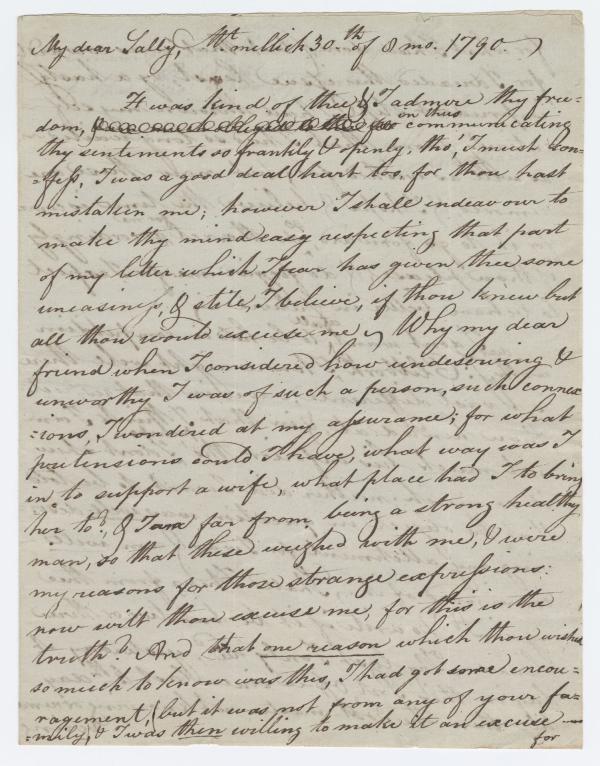 My dear Sally, Mt. mellick 30.th of 8 mo. 1790.
It was kind of thee, & I admire thy free-
dom, on thus communicating
thy sentiments so frankily & openly, tho', I must con-
=fess, I was a good deal hurt too, for thou hast
mistaken me; however I shall endeavour to
make thy mind easy respecting that part
of my letter which I fear has given thee some
uneasiness, & still, I believe, if thou knew but
all thou would excuse me, Why my dear
friend when I considered how undeserving &
unworthy I was of such a person, such connex
=ions, I wondered at my assurance; for what
pretensions could I have, what way was I
in to support a wife, what place had I to bring
her to?, & I am far from being a strong healthy
man, so that these weighed with me, & were
my reasons for those strange expressions:
now wilt thou excuse me, for this is the
truth? And that one reason which thou wished
so much to know was this, I had got some encou-
ragement, (but it was not from any of your fa-
=mily), & I was then willing to make it an excuse
for